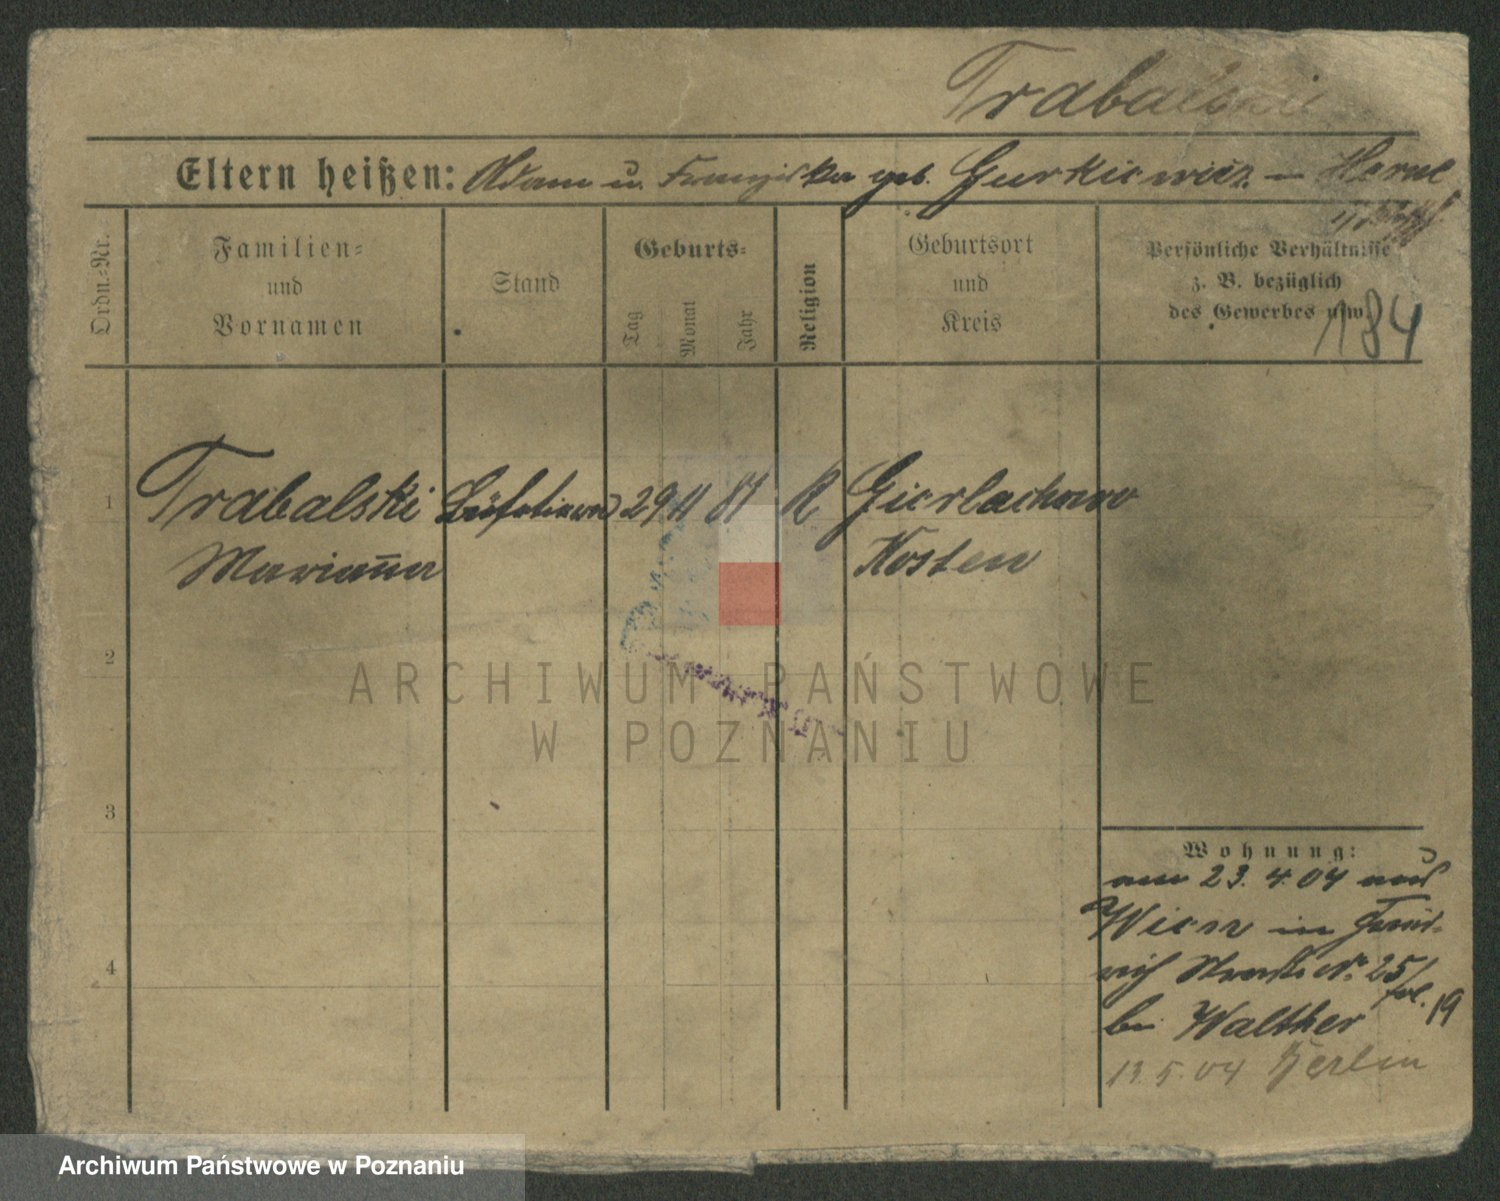 Trabalski
Eltern heißen: Adam u. Franziska geb. Gurkiewicz in
Ordn.-Nr.
Familien-
und
Vornamen
Stand
Geburts-
Tag
Monat
Jahr
Religion
Geburtsort
und
Kreis
Persönliche Verhältnisse
z. B. bezüglich
des Gewerbes usw.
184
1 Trabalski 29 11 81 R Gierlachowo
Marianna Kosten
2
3
4
Wohnung:
am 23.4.04 aus
Wien in Fried-
rich Straße Nr. 25/
19
bei Walther
13.5.04 Berlin
ARCHIWUM PAŃSTWOWE
W POZNANIU
Archiwum Państwowe w Poznaniu